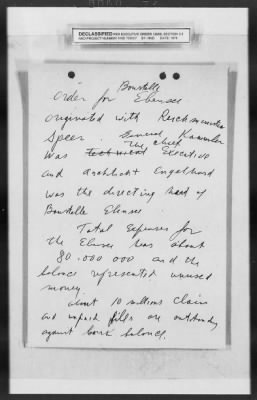 DECLASSIFIED
Baustelle
Order for Ebensee
originated with Reichsminister
Speer. General Kammler
was technical The chief Executive
and architect Engelhard
was the directing head of
Baustelle Ebensee.
Total Expenses for
the Ebensee was about
80.000 000 and the
balance represented unused
money.
about 10 millions claim
and unpaid bills are outstanding
against bank balance.